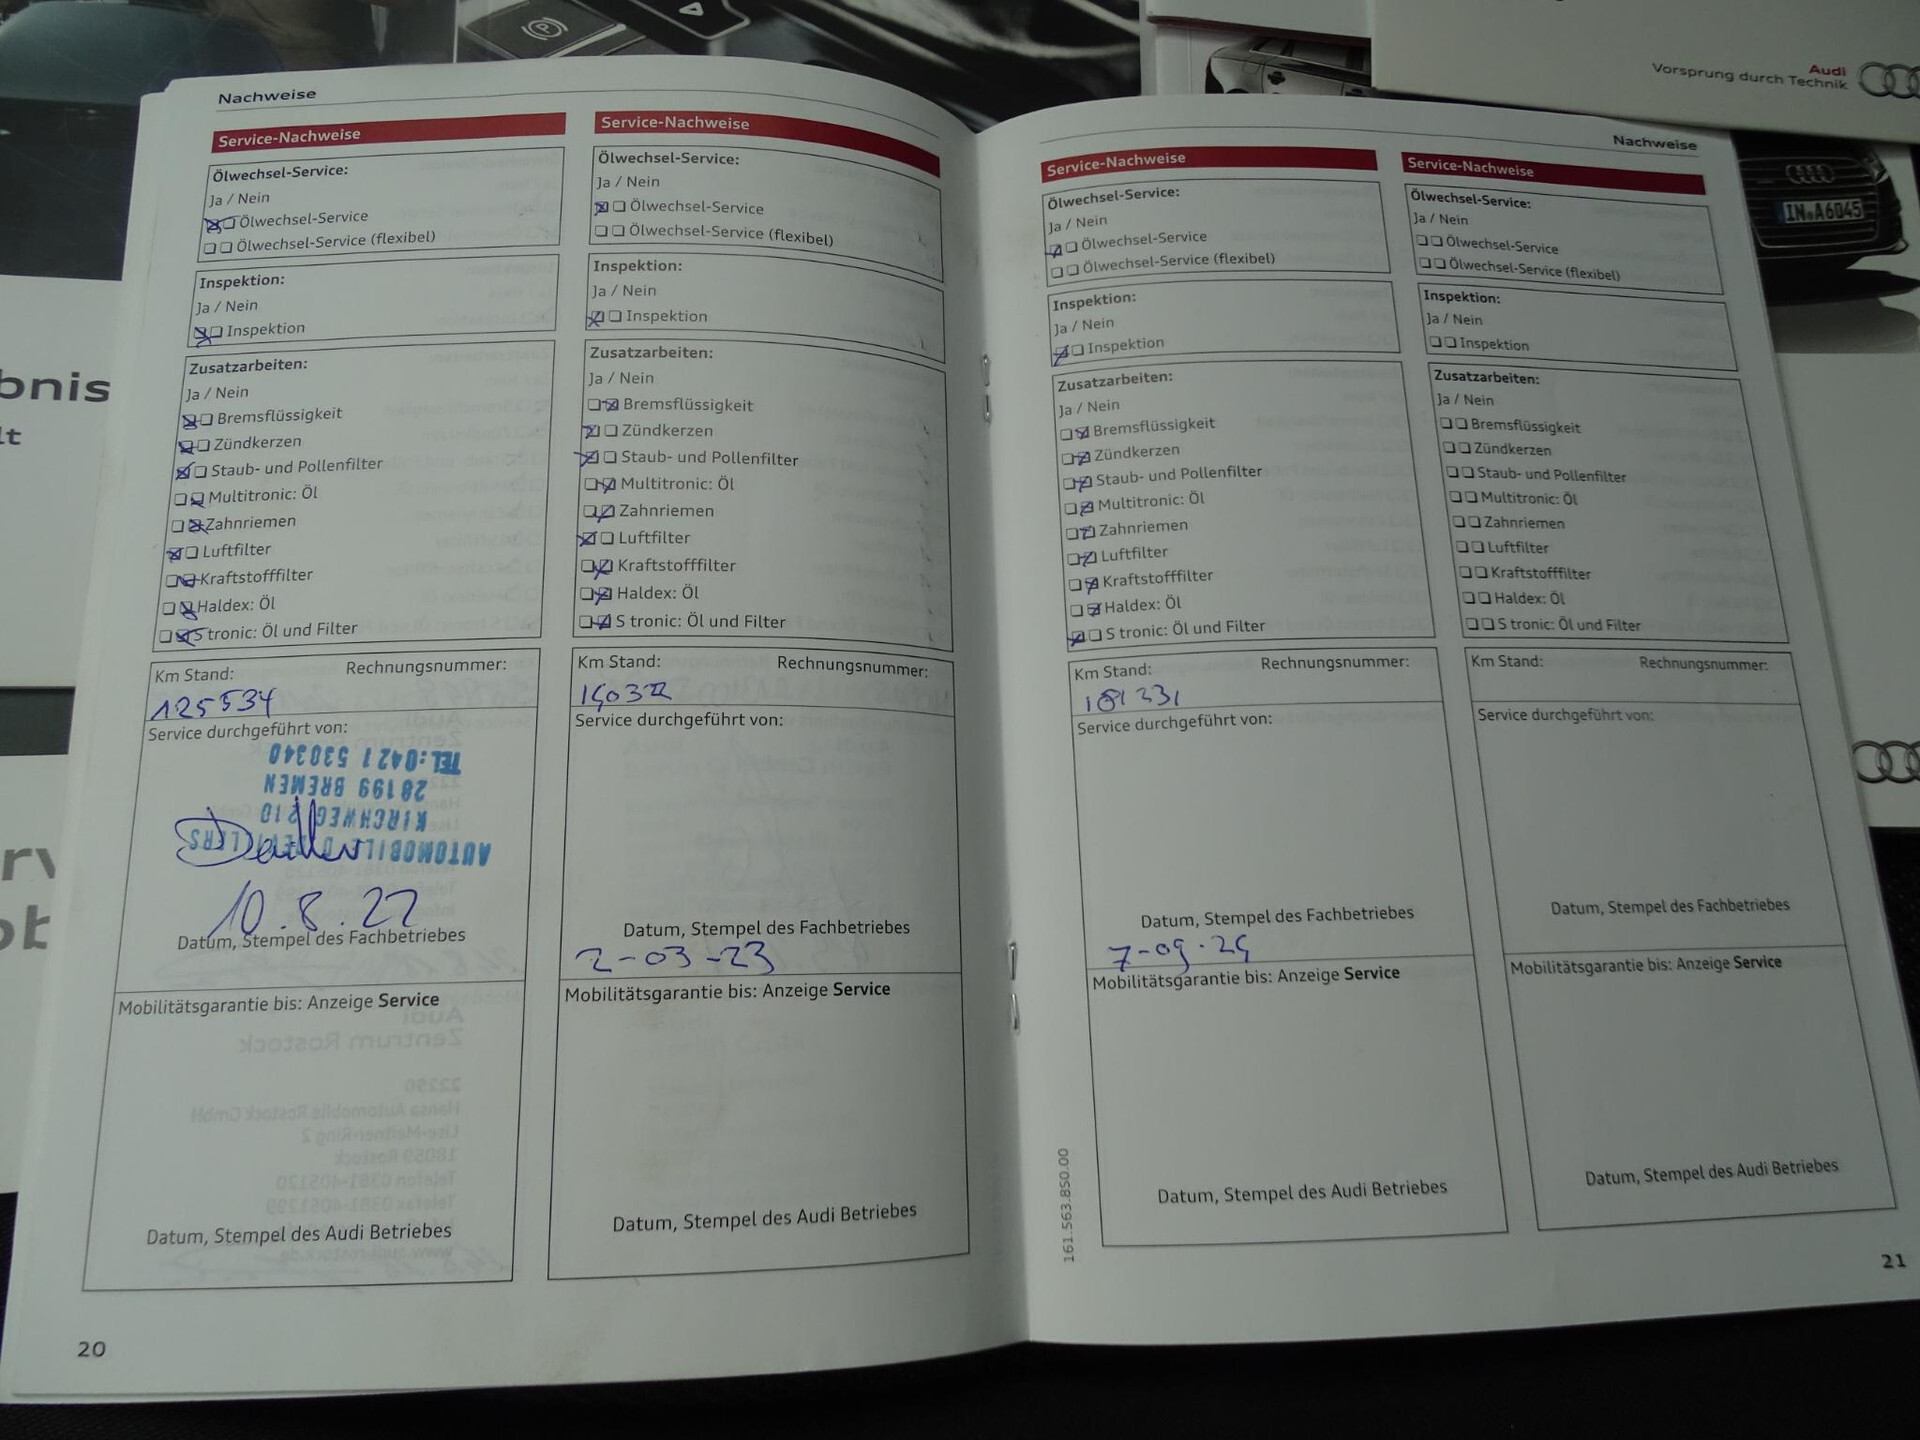 Audi
Vorsprung durch Technik
IN A6045
bnis
lt
Nachweise
Service-Nachweise
Ölwechsel-Service:
Ja / Nein
Ölwechsel-Service
Ölwechsel-Service (flexibel)
Inspektion:
Ja / Nein
Inspektion
Zusatzarbeiten:
Ja / Nein
Bremsflüssigkeit
Zündkerzen
Staub- und Pollenfilter
Multitronic: Öl
Zahnriemen
Luftfilter
Kraftstofffilter
Haldex: Öl
S tronic: Öl und Filter
Km Stand: Rechnungsnummer:
125534
Service durchgeführt von:
AUTOMOBILE
KIRCHWEG 210
28199 BREMEN
TEL:0421 530340
10.8.22
Datum, Stempel des Fachbetriebes
Mobilitätsgarantie bis: Anzeige Service
Datum, Stempel des Audi Betriebes
20
Service-Nachweise
Ölwechsel-Service:
Ja / Nein
Ölwechsel-Service
Ölwechsel-Service (flexibel)
Inspektion:
Ja / Nein
Inspektion
Zusatzarbeiten:
Ja / Nein
Bremsflüssigkeit
Zündkerzen
Staub- und Pollenfilter
Multitronic: Öl
Zahnriemen
Luftfilter
Kraftstofffilter
Haldex: Öl
S tronic: Öl und Filter
Km Stand: Rechnungsnummer:
Service durchgeführt von:
Datum, Stempel des Fachbetriebes
2-03-23
Mobilitätsgarantie bis: Anzeige Service
Datum, Stempel des Audi Betriebes
Nachweise
Service-Nachweise
Ölwechsel-Service:
Ja / Nein
Ölwechsel-Service
Ölwechsel-Service (flexibel)
Inspektion:
Ja / Nein
Inspektion
Zusatzarbeiten:
Ja / Nein
Bremsflüssigkeit
Zündkerzen
Staub- und Pollenfilter
Multitronic: Öl
Zahnriemen
Luftfilter
Kraftstofffilter
Haldex: Öl
S tronic: Öl und Filter
Km Stand: Rechnungsnummer:
181331
Service durchgeführt von:
Datum, Stempel des Fachbetriebes
7-09-24
Mobilitätsgarantie bis: Anzeige Service
Datum, Stempel des Audi Betriebes
161.563.850.00
Service-Nachweise
Ölwechsel-Service:
Ja / Nein
Ölwechsel-Service
Ölwechsel-Service (flexibel)
Inspektion:
Ja / Nein
Inspektion
Zusatzarbeiten:
Ja / Nein
Bremsflüssigkeit
Zündkerzen
Staub- und Pollenfilter
Multitronic: Öl
Zahnriemen
Luftfilter
Kraftstofffilter
Haldex: Öl
S tronic: Öl und Filter
Km Stand: Rechnungsnummer:
Service durchgeführt von:
Datum, Stempel des Fachbetriebes
Mobilitätsgarantie bis: Anzeige Service
Datum, Stempel des Audi Betriebes
21